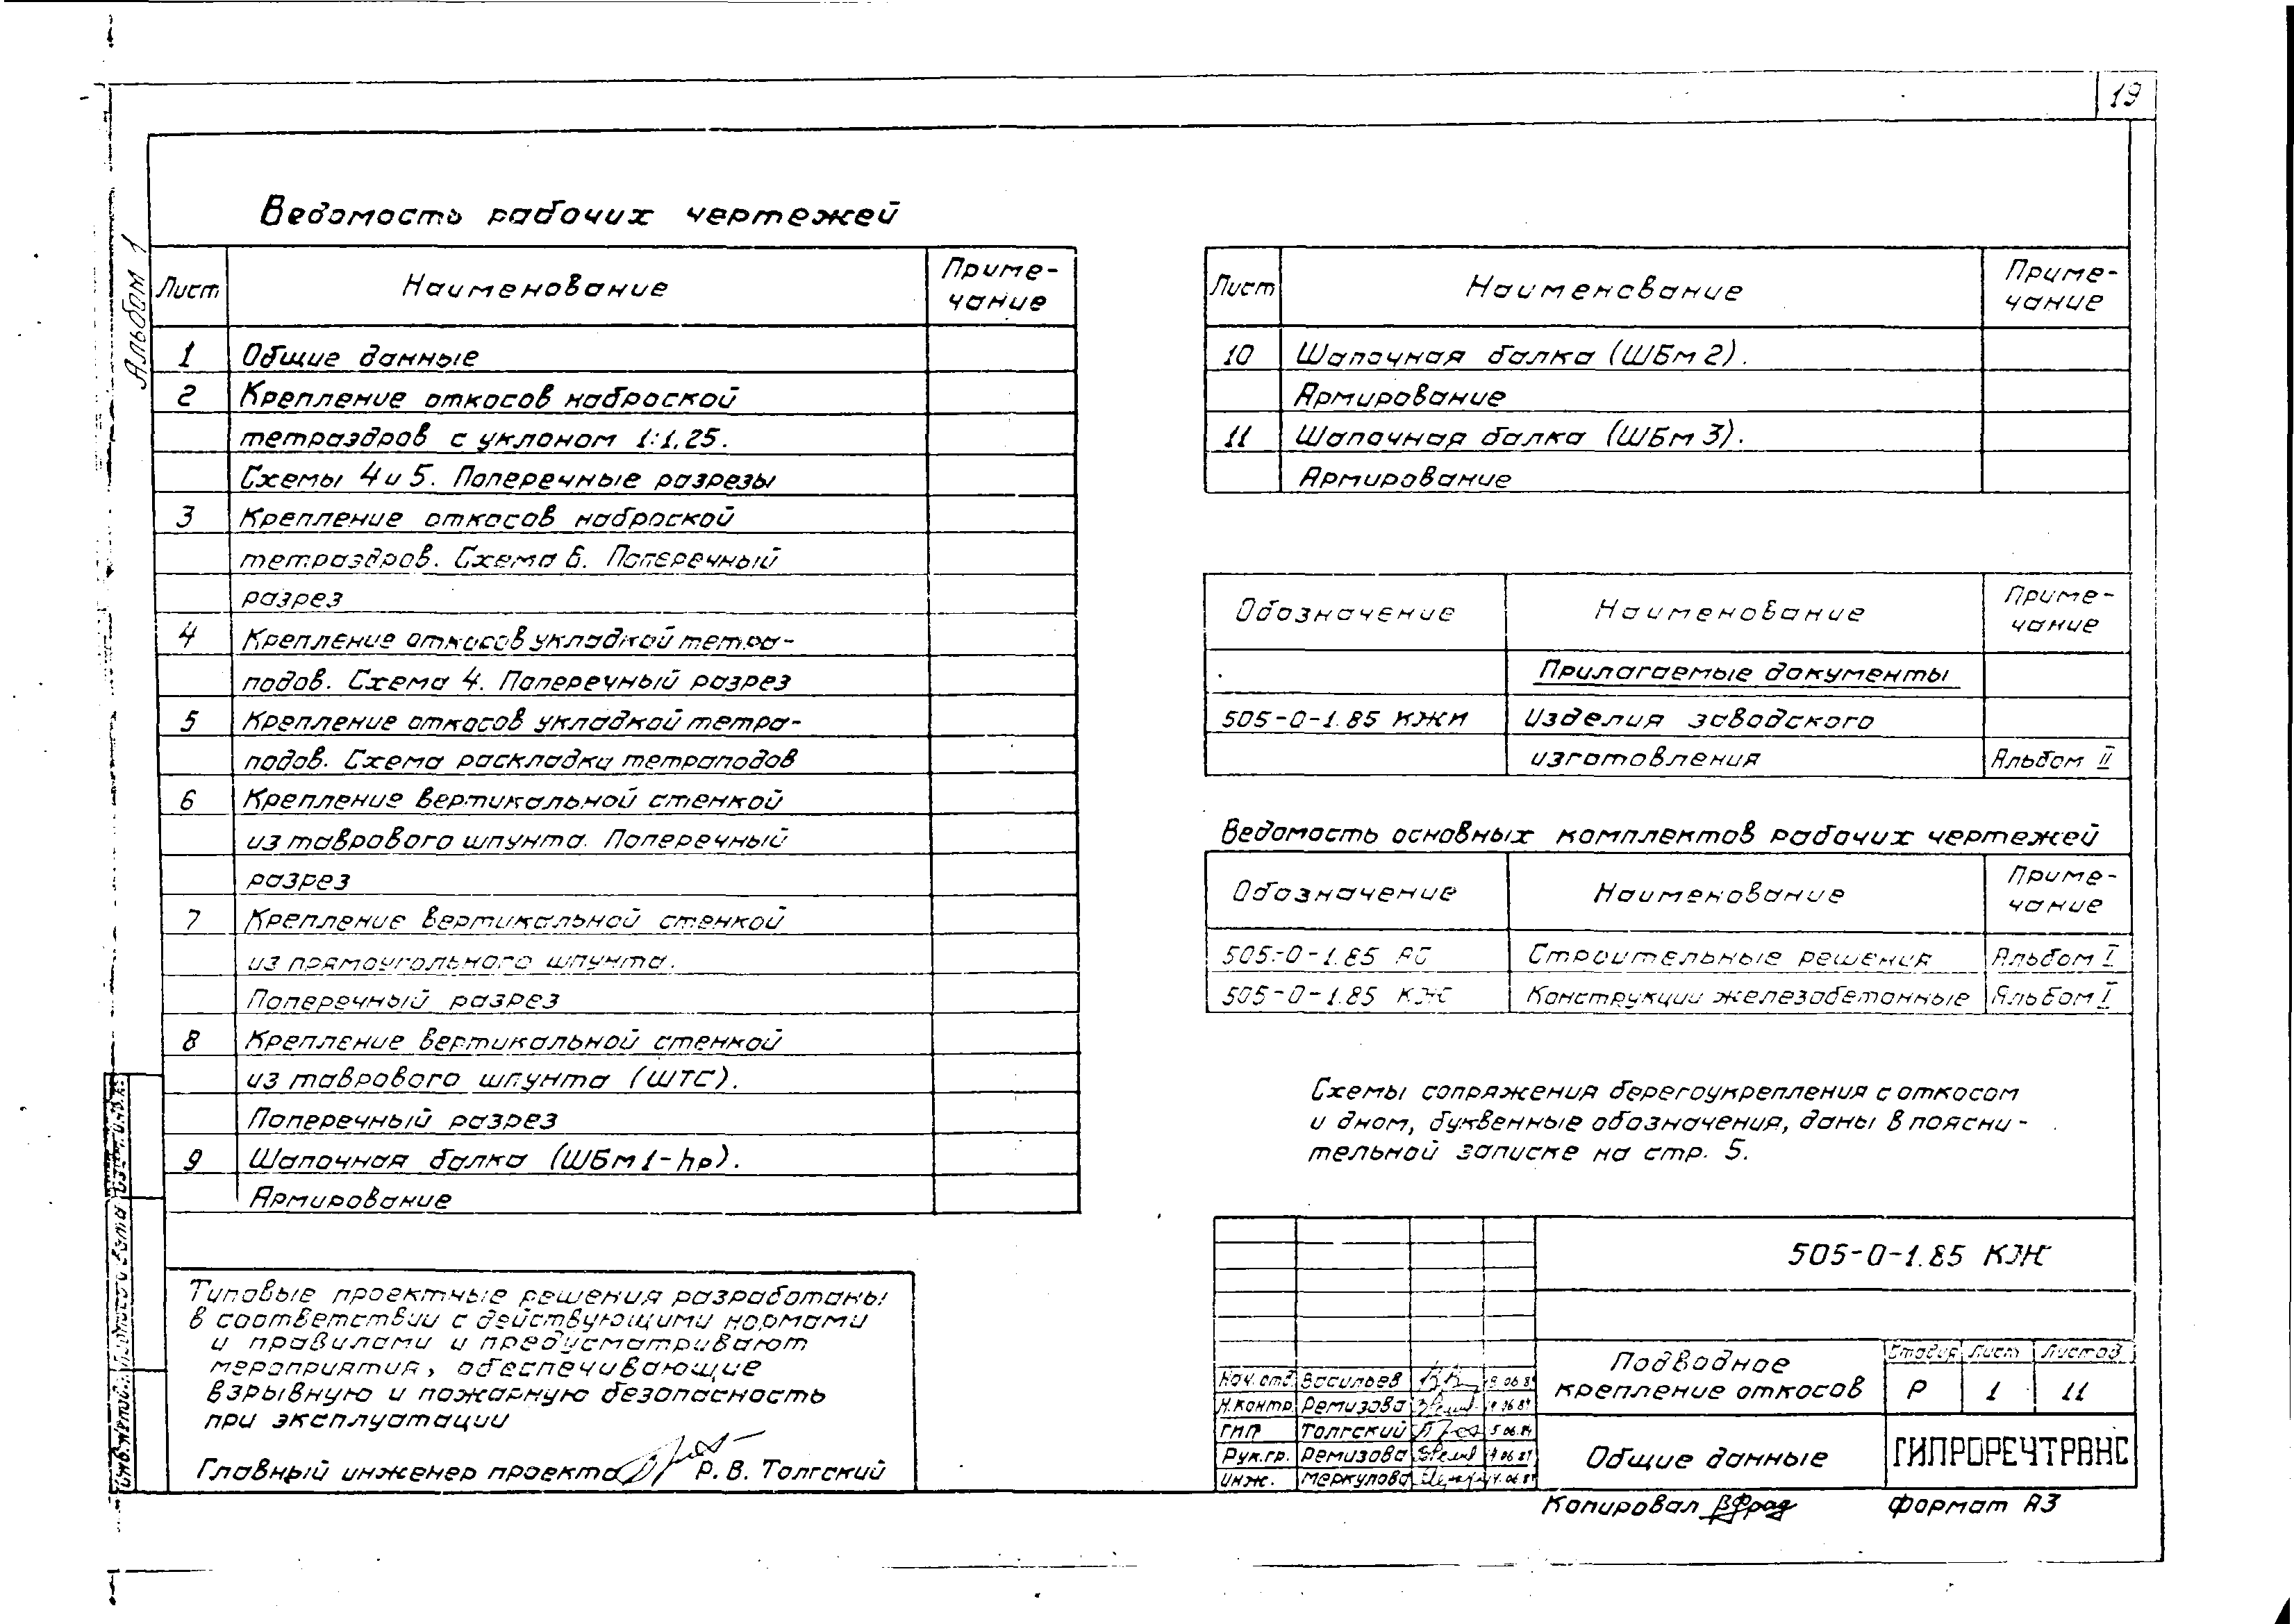 19
Альбом 1
Ведомость рабочих чертежей
Лист Наименование Приме-
чание
1 Общие данные
2 Крепление откосов наброской
тетраэдров с уклоном 1:1,25.
Схемы 4 и 5. Поперечные разрезы
3 Крепление откосов наброской
тетраэдров. Схема 6. Поперечный
разрез
4 Крепление откосов укладкой тетра-
подов. Схема 4. Поперечный разрез
5 Крепление откосов укладкой тетра-
подов. Схема раскладки тетраподов
6 Крепление вертикальной стенкой
из таврового шпунта. Поперечный
разрез
7 Крепление вертикальной стенкой
из прямоугольного шпунта.
Поперечный разрез
8 Крепление вертикальной стенкой
из таврового шпунта (ШТС).
Поперечный разрез
9 Шапочная балка (ШБм1-hр).
Армирование
Типовые проектные решения разработаны
в соответствии с действующими нормами
и правилами и предусматривают
мероприятия, обеспечивающие
взрывную и пожарную безопасность
при эксплуатации
Главный инженер проекта Р. В. Толгский
Лист Наименование Приме-
чание
10 Шапочная балка (ШБм2).
Армирование
11 Шапочная балка (ШБм3).
Армирование
Обозначение Наименование Приме-
чание
Прилагаемые документы
505-0-1.85 КЖИ Изделия заводского
изготовления Альбом II
Ведомость основных комплектов рабочих чертежей
Обозначение Наименование Приме-
чание
505-0-1.85 АС Строительные решения Альбом I
505-0-1.85 КЖ Конструкции железобетонные Альбом I
Схемы сопряжения берегоукрепления с откосом
и дном, буквенные обозначения, даны в поясни-
тельной записке на стр. 5.
505-0-1.85 КЖ
Подводное
крепление откосов
Стадия Лист Листов
Р 1 11
Нач. отд. Васильев
Н.контр. Ремизова
ГИП Толгский
Рук.гр. Ремизова
Инж. Меркулова
Общие данные
ГИПРОРЕЧТРАНС
Копировал
Формат А3